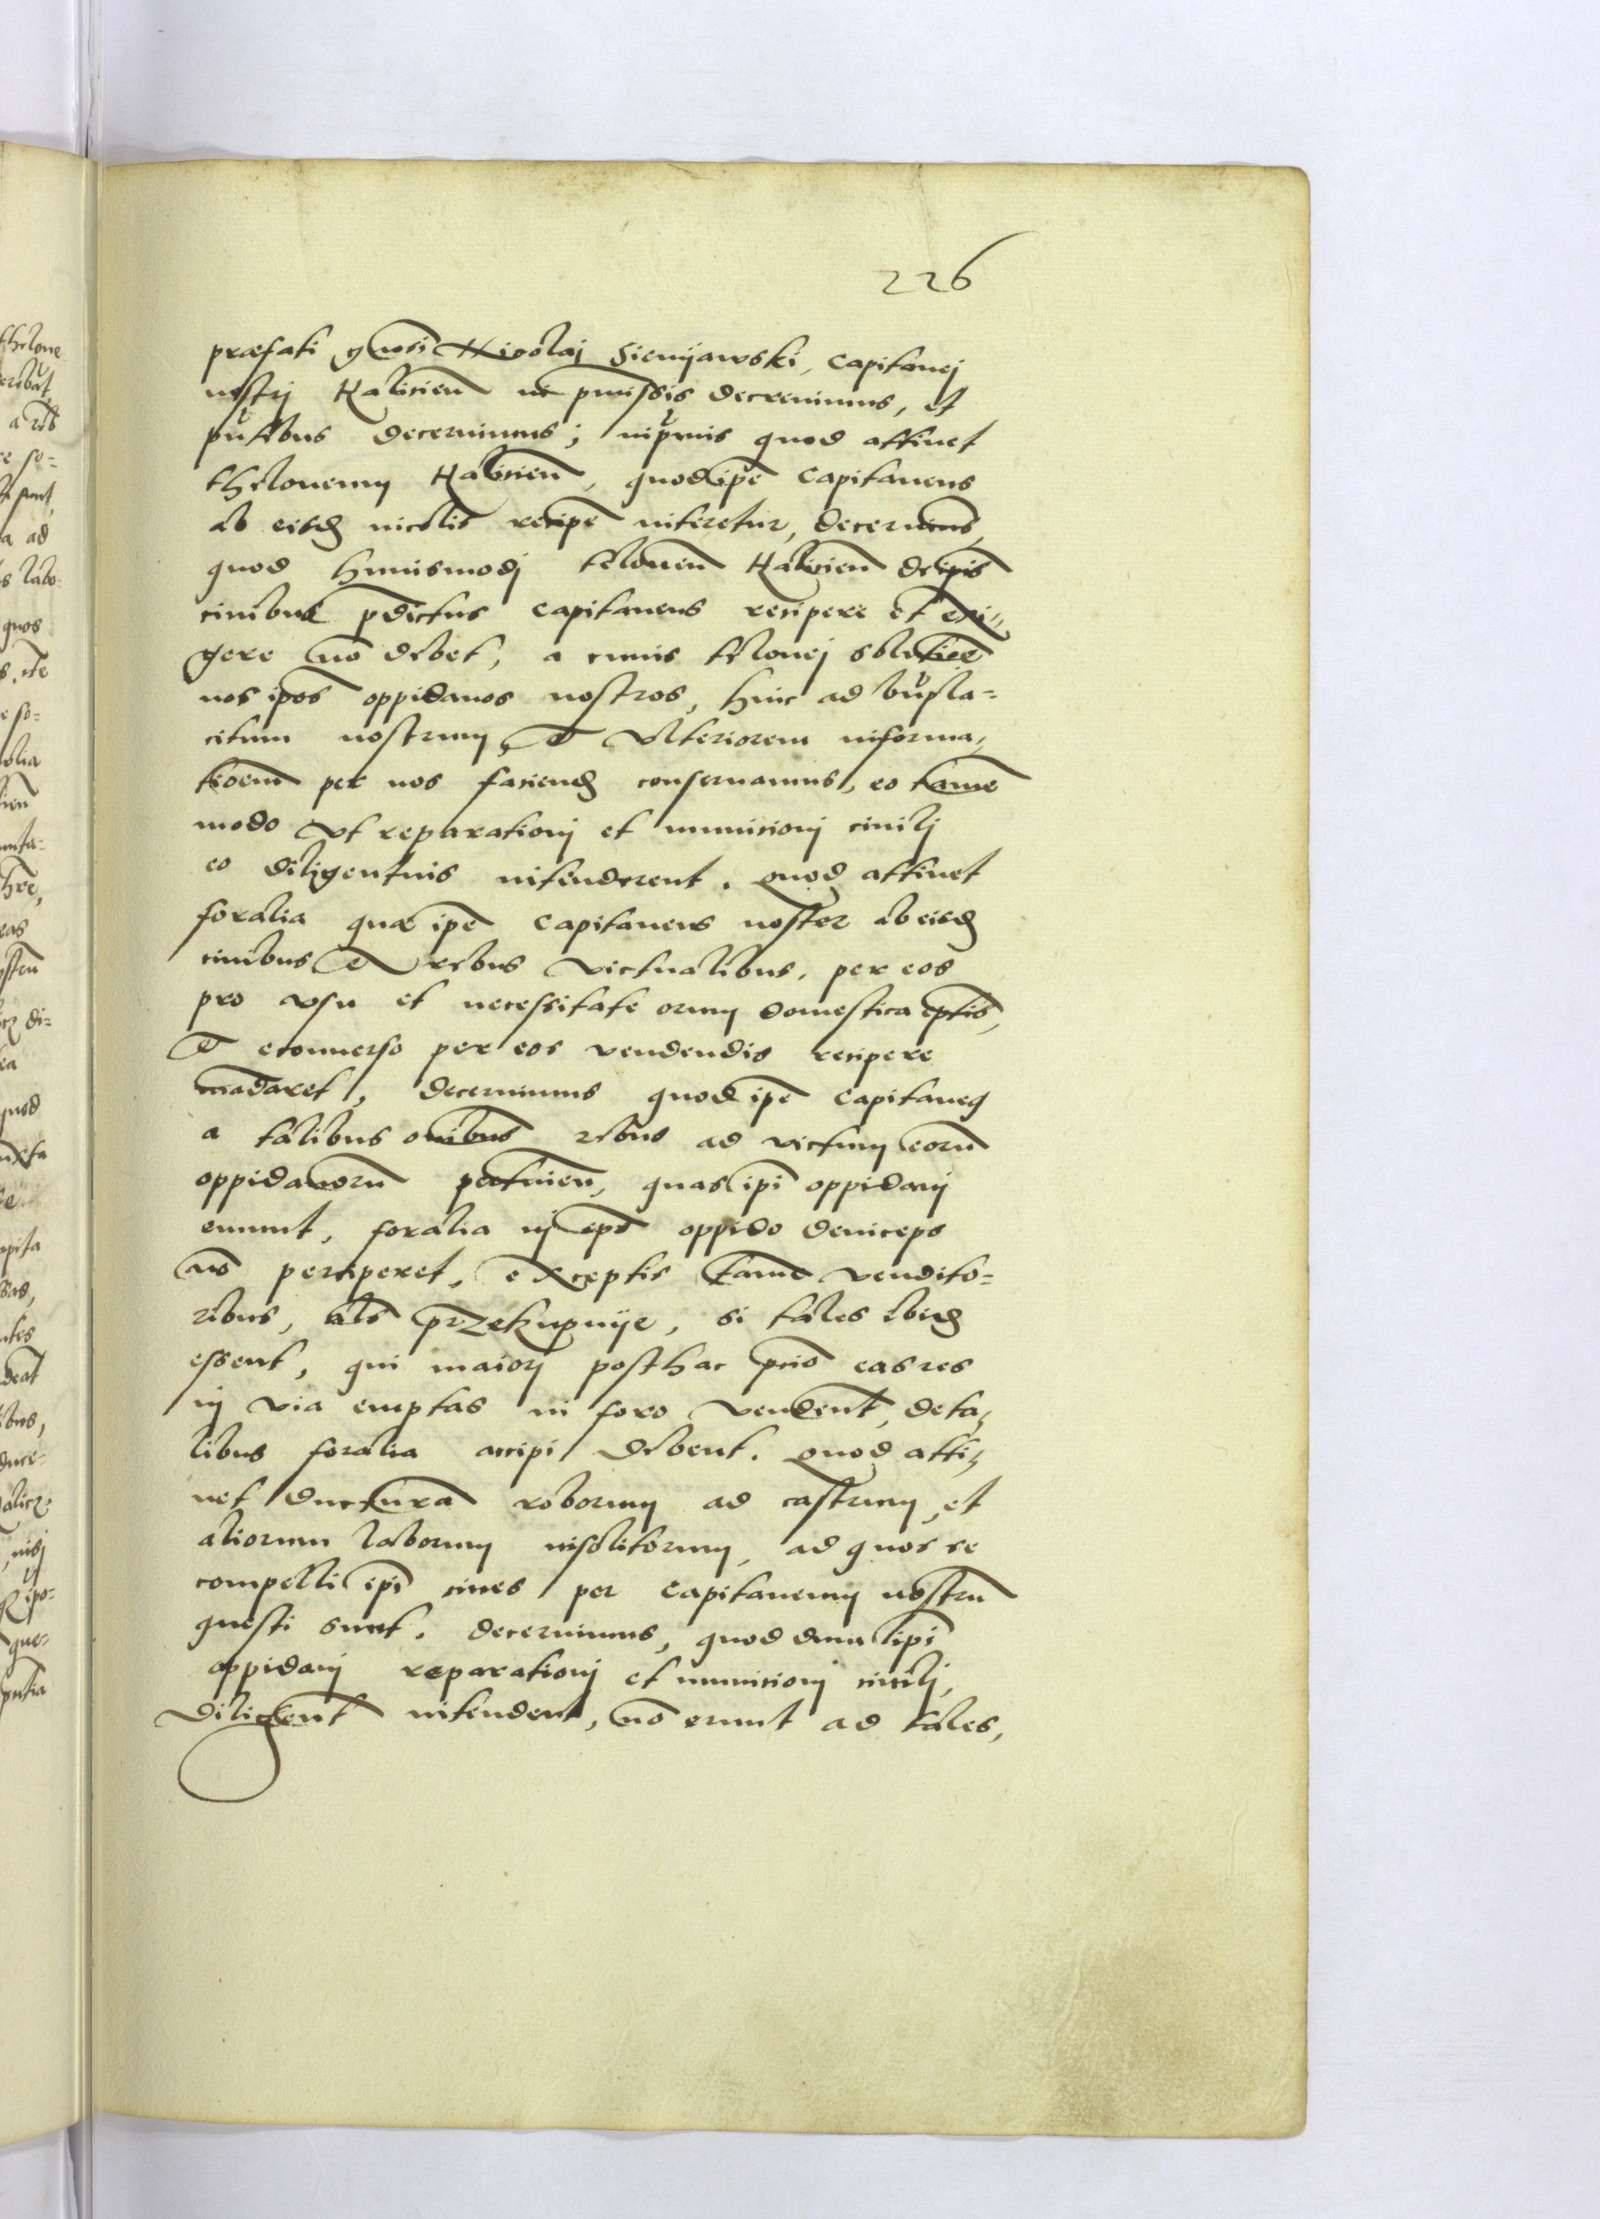 226
præfati gnosi Nicolaj Sienijawski, Capitanej
nostrj Halicien in pmissis decrevimus, et
pntibus decernimus; inprimis quod attinet
thelonemm Halicien, quod ipe Capitaneus
ab eisd incolis recipe niteretur, decernims,
quod huiusmodj telonem Halicien de ipis
civibus pdictus capitaneus recipere et exi-
gere no debet, a cuius telonej solutioe
nos ipos oppidanos nostros, huic ad bnpla-
citum nostrum, et ulteriorem informa-
tioem per nos faciend conservamus, eo tame
modo ut reparationj et municionj civilj
eo diligentius intenderent. Quod attinet
foralia quæ ipe Capitaneus noster ab eisd
civibus a rebus victualibus, per eos
pro usu et necessitate orum domestica eptis,
et econverso per eos vendendis recipere
madaret, decernimus quod ipe Capitaneus
a talibus oibus rebus ad victum eoru
oppidanoru pertinen, quas ipi oppidanj
emunt, foralia in ipo oppido deinceps
no perciperet, exceptis tame vendito-
ribus, als przekupnije, si tales ibid
essent, qui maiorj posthac pcio eas res
in via emptas in foro vendent, de ta-
libus foralia accipi debent. Quod atti-
net ductura roborum ad castrum, et
aliorum laborum insolitorum, ad quos se
compelli ipi cives per Capitaneum nostru
questi sunt, decernimus, quod dum ipi
oppidanj reparationj et municionj civilj,
diligent intendent, no erunt ad tales,